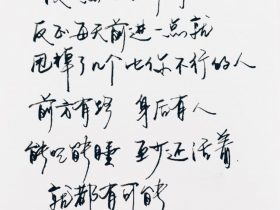 反正每天前进一点就
甩掉了几个比你不行的人
前方有路 身后有人
能吃能睡 至少还活着
就都有可能